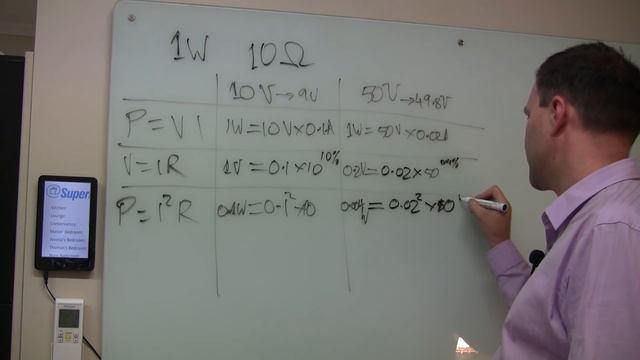 1W 10Ω
10V→9V 50V→49.8V
P=VI 1W=10V×0.1A 1W=50V×0.02A
V=IR 1V=0.1×10 10% 0.2V=0.02×10
P=I²R 0.1W=0.1²×10 =0.02²×10
@Super
Kitchen
Lounge
Conservatory
Master Bedroom
Thomas's Bedroom